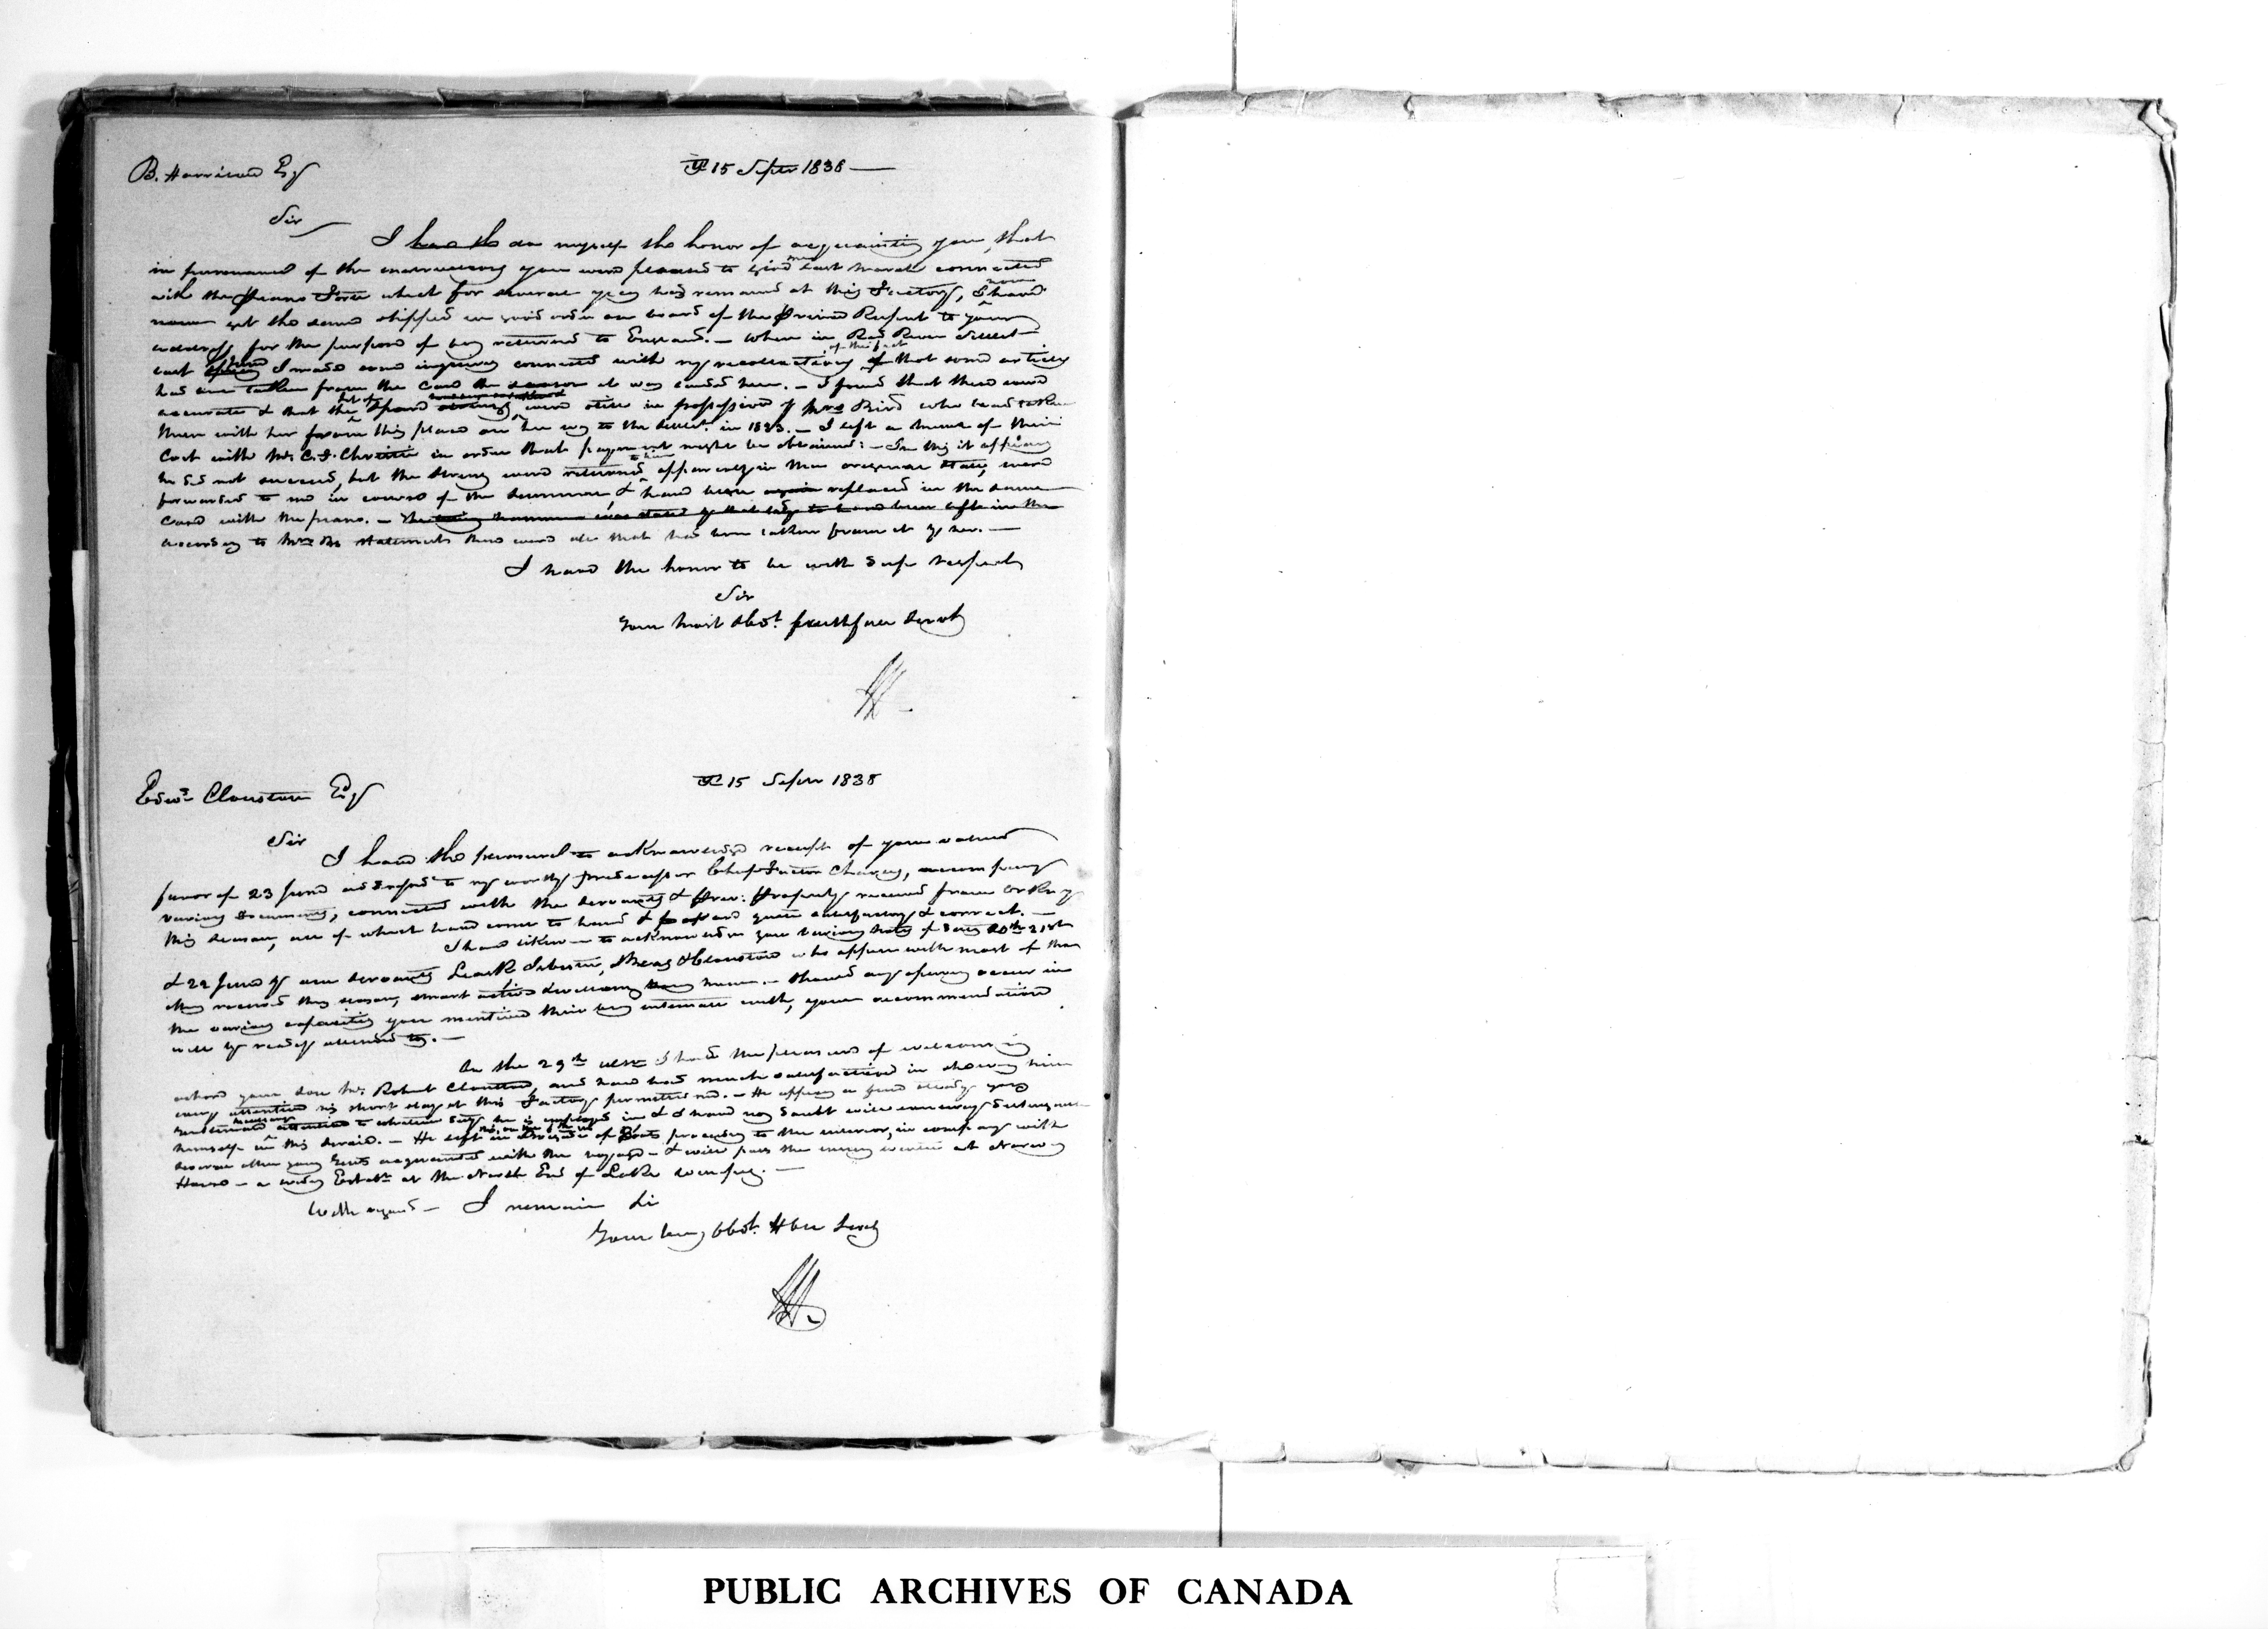 B. Harrison Esq
YF 15 Septr 1838
Sir
I have the do myself the honor of acquainting you, that
in pursuance of the instructions you were pleased to give me last March connected
with the Piano Forte which for several years has remained at this Factory, I have
now got the same shipped in good order on board of the Prince Rupert to your
address for the purpose of being returned to England. – When in Red River Settlet
last Spring I made some inquiries connected with my recollections of this fact that some articles
had been taken from the Case the season it was landed here. – I found that these were
accurate & that the set of spare were still in possession of Mrs Bird who had taken
them with her from this place on her way to the Settlet in 1833. – I left a memo of their
Cost with Mr. C. F. Christie in order that payment might be obtained: – In this it appears
he did not succeed, but the strings were returned to him apparently in their original state, were
forwarded to me in course of the summer, & have been again replaced in the same
Case with the piano. – The tuning hammer was stated by that lady to have been left in the
according to Mrs B's statements these were all that had been taken from it by her. –
I have the honor to be with deep respect
Sir
Your most Obdt. faithful Servt
YF 15 Septr 1838
Edwd Clouston Esq
Sir
I have the pleasure to acknowledge receipt of your valued
favor of 23 June addressed to my worthy predecessor Chief Factor Charles, accompanying
various documents, connected with the servants & Priv: Property received from Orkney
this season, all of which have come to hand & appeared quite satisfactory & correct. –
I have likewise to acknowledge your various notes of 20th 21st
& 22 June of our servants Leask Isbister, & Clouston who appear with most of the
others received this season, smart active & willing men. – Should any opening occur in
the various capacities your mentioned their being intimate with, your recommendations
will be readily attended to. –
On the 29th ulto I had the pleasure of welcoming
ashore your son Mr. Robert Clouston, and have had much satisfaction in showing him
every attention his short stay at this Factory permitted me. – He appears a fine steady young
necessary
himself in this service. – He left in Brigade of Boats proceeding to the interior, in company with
several other young Gents acquainted with the voyage – & will pass the ensuing winter at Norway
House – a Estabt at the North End of Lake Winipeg. –
With regard – I remain Sir
Your very Obdt. Hble Servt
PUBLIC ARCHIVES OF CANADA